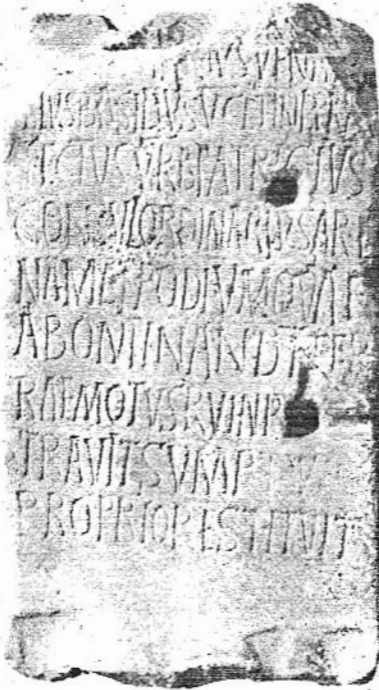 VS VENAN
TIVS BASILIVS V C ET INL PRAE
FECTVS VRBI PATRICIVS
CONSVL ORDINARIVS ARE
NAM ET PODIVM QVAE
ABOMINANDI TER
RAE MOTVS RVINA PROS
TRAVIT SVMPTV
PROPRIO RESTITVIT